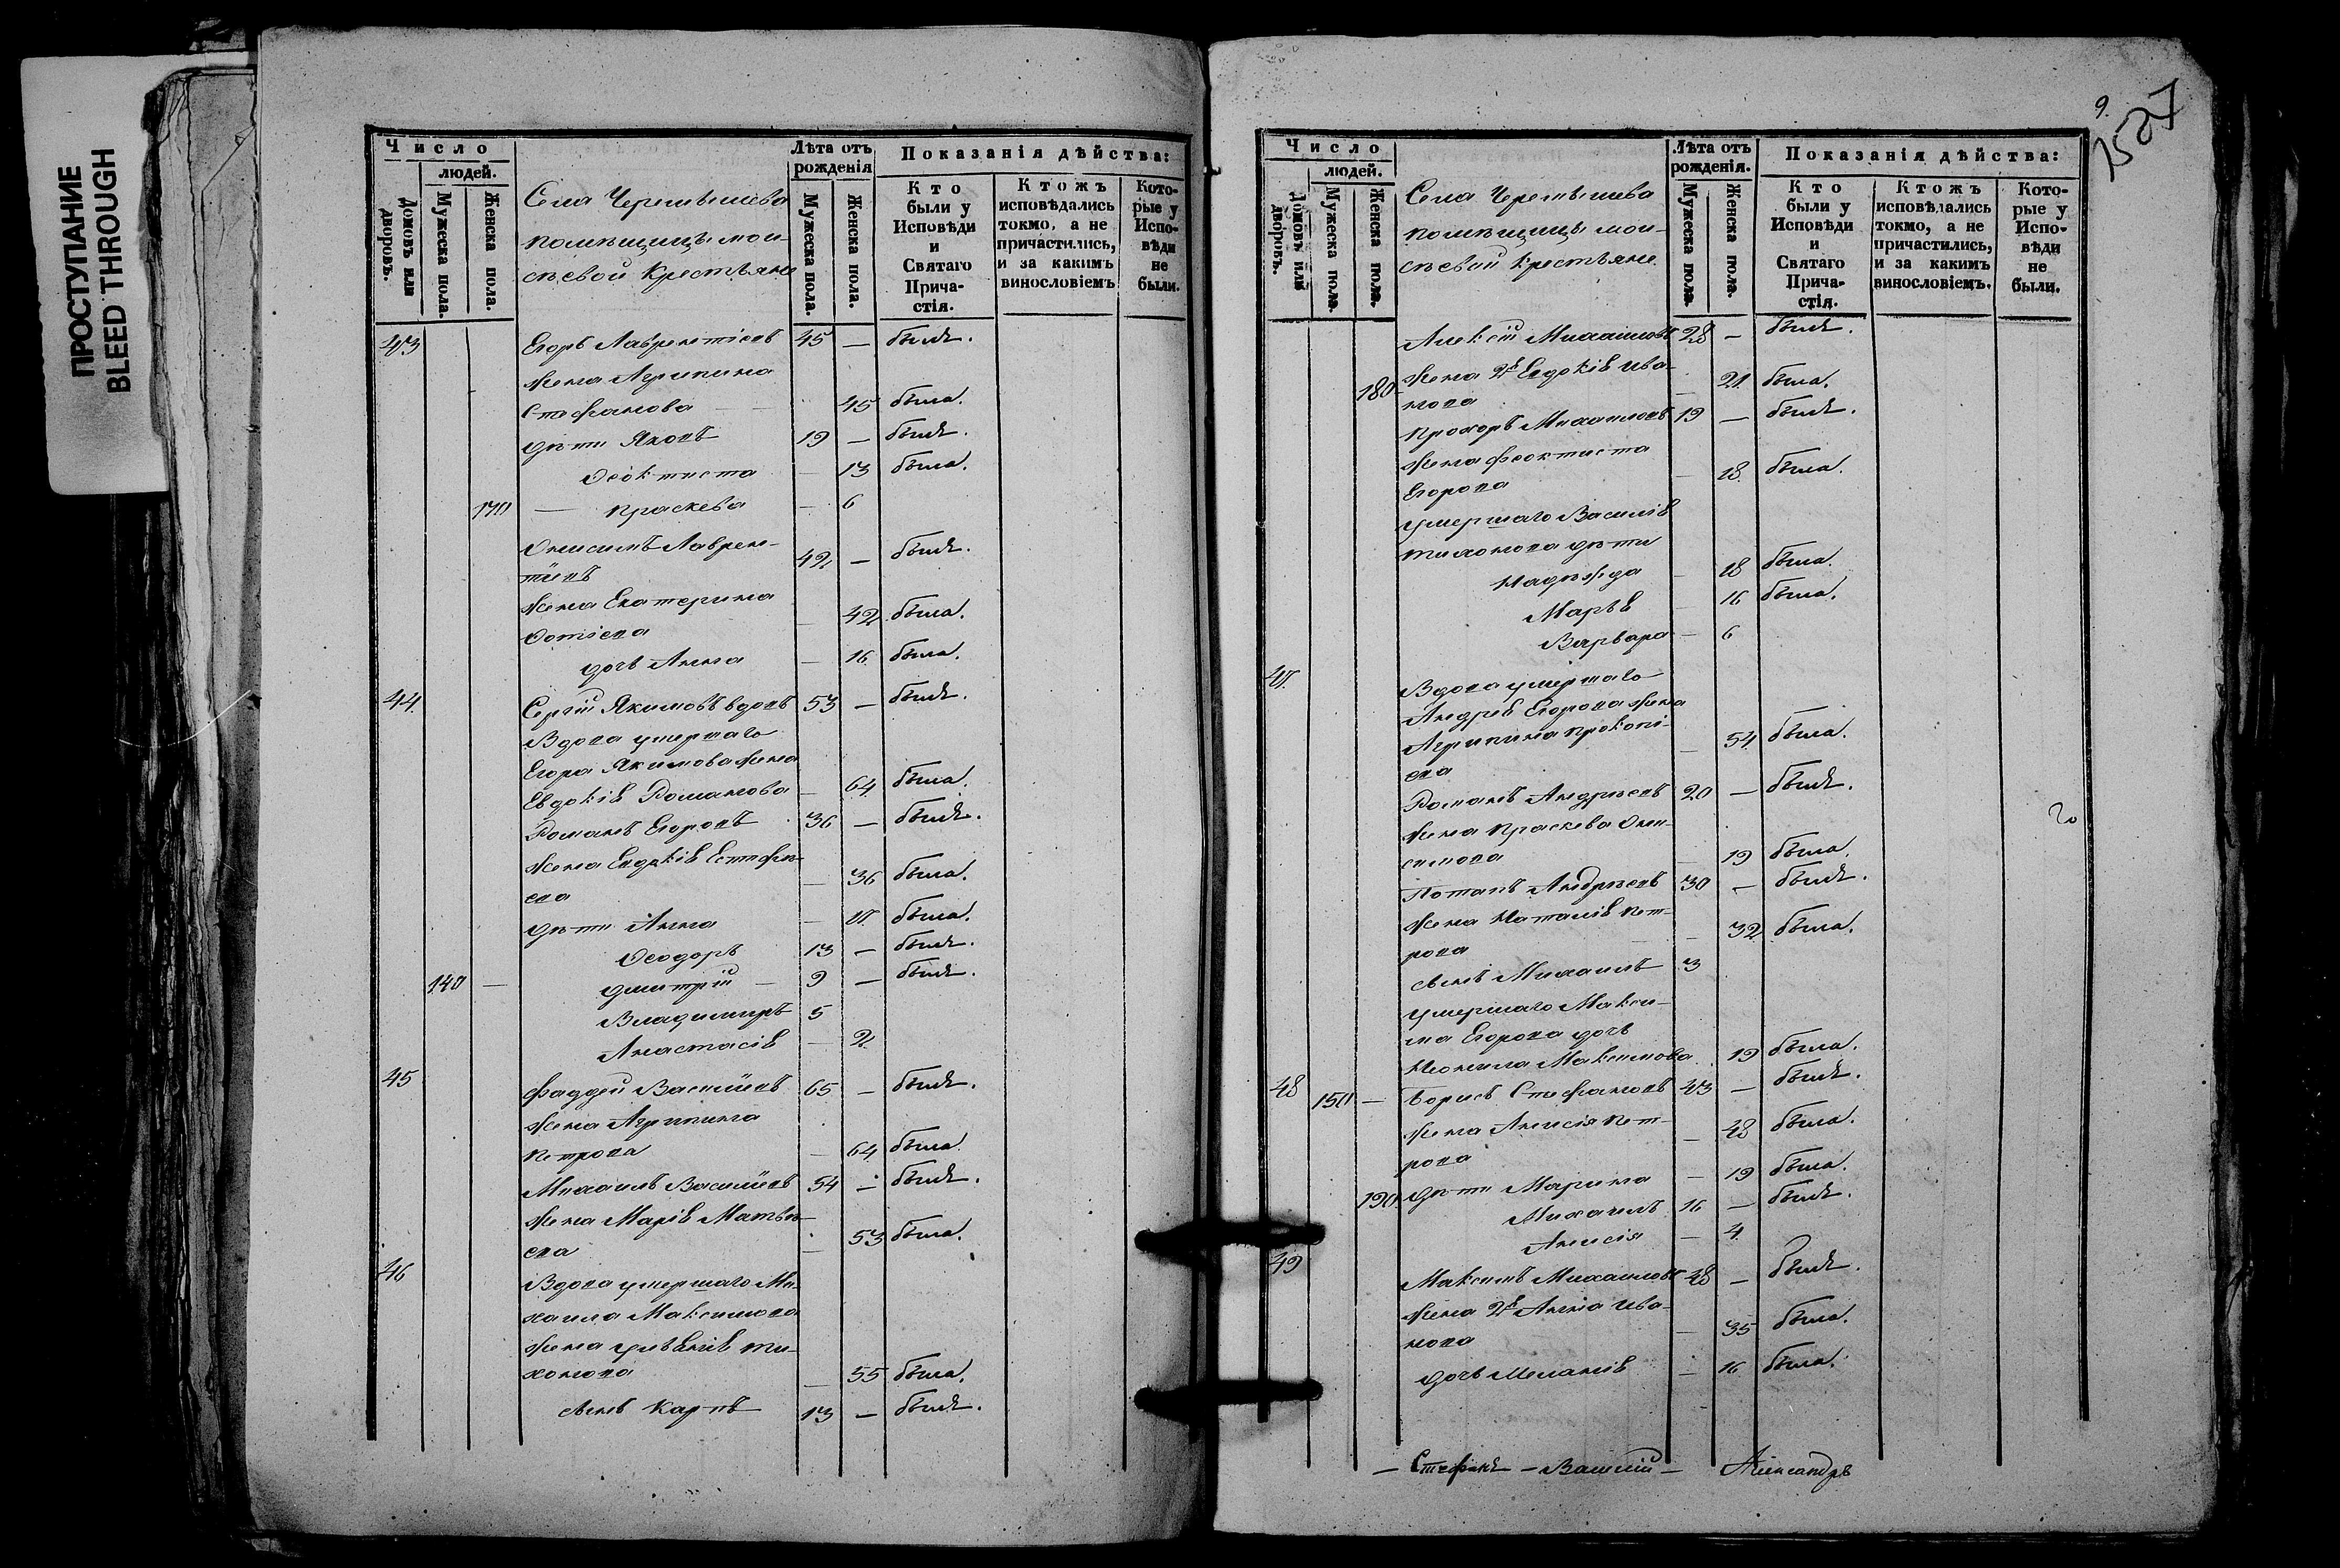 ПРОСТУПАНИЕ
BLEED THROUGH
Число
людей.
Домовъ или дворовъ.
Мужеска пола.
Женска пола.
Села Черемышева
помѣщицы мои-
сѣевой Крестьяне
Лѣта отъ рожденія
Мужеска пола.
Женска пола.
Показанія дѣйства:
Кто были у Исповѣди и Святаго Прича-стія.
Ктожъ исповѣдались токмо, а не причастились, и за какимъ винословіемъ
Кото-рые у Испо-вѣди не были.
43 Егоръ Лаврентіевъ 45 — былъ.
жена Агрипина
Стефанова — 45 была.
дѣти Яковъ 19 — былъ.
Ѳеоктиста — 13 была.
170 — праскева — 6
Онисимъ Лаврен-
тіевъ 42 — былъ.
жена Екатерина
Ѳотіева — 42 была.
дочь Анна — 16 была.
44 Сергій Якимовъ вдовъ 53 — былъ.
Вдова умершаго
Егора Якимова жена
Евдокія Романова — 64 была.
Романъ Егоровъ 36 — былъ.
жена Евдокія Естифѣ-
ева — 36 была.
дѣти Анна — 17 была.
Ѳеодоръ 13 — былъ.
140 — дмитрій — 9 — былъ.
Владимиръ 5
Анастасія — 2
45 Фаддей Василіевъ 65 — былъ.
жена Агрипина
петрова — 64 была.
Михаилъ Василіевъ 54 — былъ.
жена Марія Матвѣ-
ева — 53 была.
46 Вдова умершаго Ми-
хаила Максимова
жена Ти-
хонова — 55 была.
сынъ Карпъ 13 — былъ.
9.
1527
Число
людей.
Домовъ или дворовъ.
Мужеска пола.
Женска пола.
Села Черемышева
помѣщицы мои-
сѣевой крестьяне.
Лѣта отъ рожденія.
Мужеска пола.
Женска пола.
Показанія дѣйства:
Кто были у Исповѣди и Святаго Прича-стія.
Ктожъ исповѣдались токмо, а не причастились, и за какимъ винословіемъ.
Кото-рые у Испо-вѣди не были.
Алексій Михаиловъ 28 — былъ.
180 жена 2я Евдокія Ива-
нова — 21 была.
прохоръ Михаиловъ 19 — былъ.
жена феоктиста
Егорова — 18 была.
умершаго Василія
тихонова дѣти
Надѣжда — 18 была.
Марья 16 была.
Варвара — 6
47. Вдова умершаго
Андрея Егорова жена
Агрипина прокопі-
ева — 54 была.
Романъ Андрѣевъ 20 — былъ.
жена праскева Они-
симова — 19 была.
Потапъ Андрѣевъ 30 — былъ.
жена Наталія пет-
рова — 32 была.
сынъ Михаилъ 3
умершаго Макси-
ма Егорова дочь
Неонила Максимова 19 была.
48 150 — Борисъ Стефановъ 43 — былъ.
жена Анисія пет-
рова — 48 была.
190 дѣти Марина — 19 была.
Михаилъ 16 — былъ.
Анисія — 4
49 Максимъ Михаиловъ 48 — былъ.
жена 2я Анна Ива-
нова — 35 была.
дочь Меланія — 16 была.
— Стефанъ — Василій — Александръ